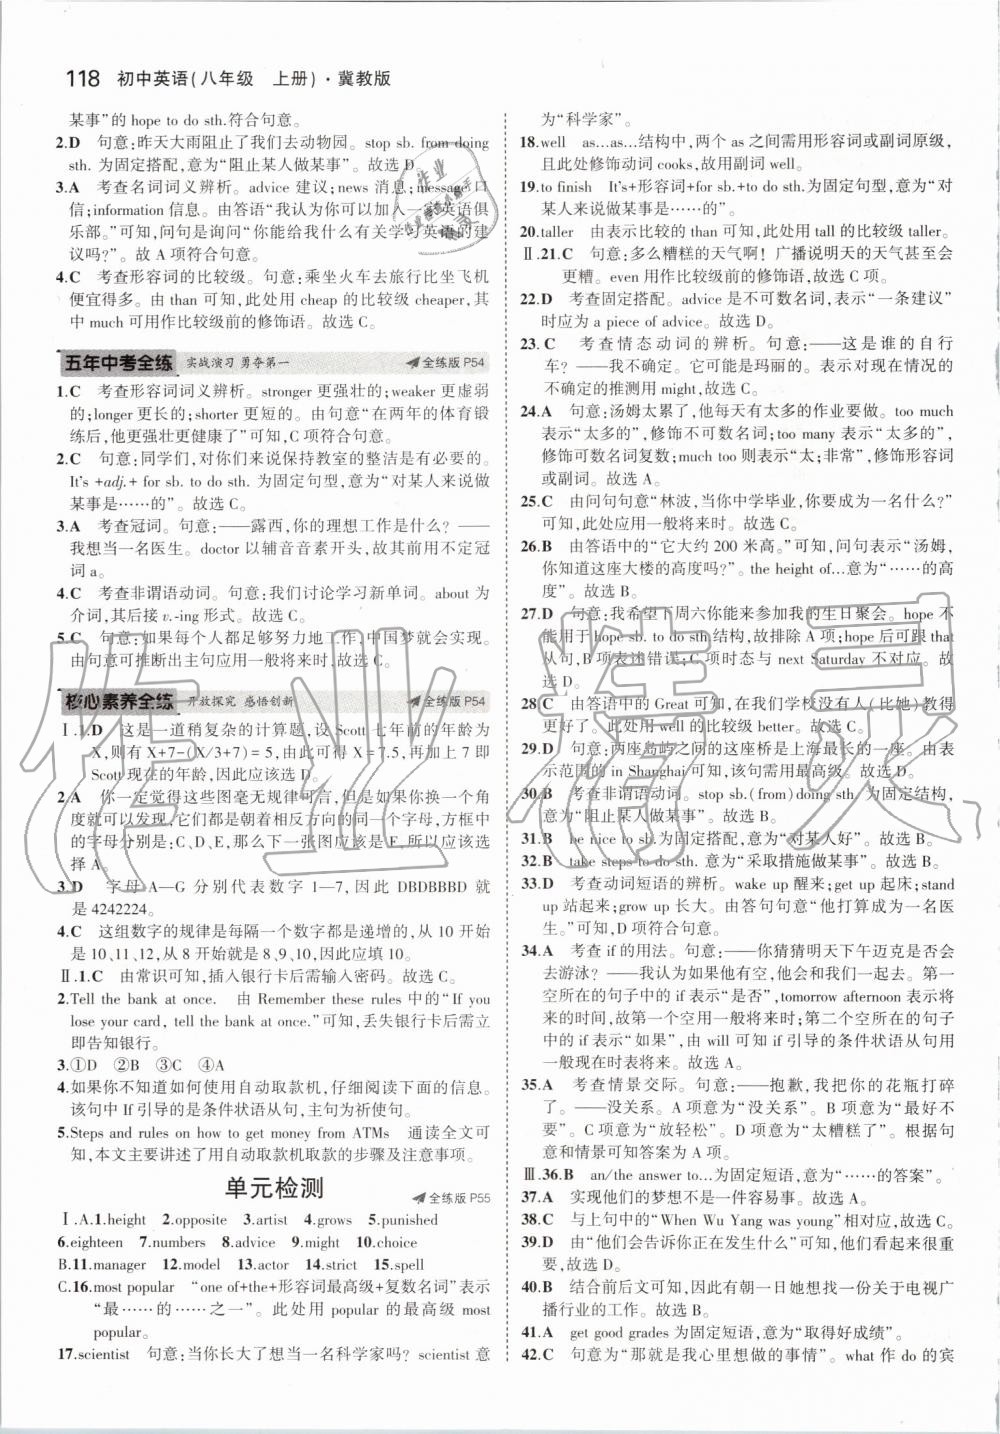 118 初中英语(八年级 上册)·冀教版
某事”的 hope to do sth.符合句意。
2.D 句意:昨天大雨阻止了我们去动物园。stop sb. from doing
sth. 为固定搭配,意为“阻止某人做某事”。故选 D。
3.A 考查名词词义辨析。advice 建议;news 消息;message 口
信;information 信息。由答语“我认为你可以加入一家英语俱
乐部。”可知,问句是询问“你能给我什么有关学习英语的建
议吗?”。故 A 项符合句意。
4.C 考查形容词的比较级。句意:乘坐火车去旅行比坐飞机
便宜得多。由 than 可知,此处用 cheap 的比较级 cheaper,其
中 much 可用作比较级前的修饰语。故选 C。
五年中考全练 实战演习 勇夺第一 全练版 P54
1.C 考查形容词词义辨析。stronger 更强壮的;weaker 更虚弱
的;longer 更长的;shorter 更短的。由句意“在两年的体育锻
炼后,他更强壮更健康了”可知,C 项符合句意。
2.C 句意:同学们,对你们来说保持教室的整洁是有必要的。
It's +adj.+ for sb. to do sth. 为固定句型,意为“对某人来说做
某事是……的”。故选 C。
3.A 考查冠词。句意:——露西,你的理想工作是什么? ——
我想当一名医生。doctor 以辅音音素开头,故其前用不定冠
词 a。
4.C 考查非谓语动词。句意:我们讨论学习新单词。about 为
介词,其后接 v.-ing 形式。故选 C。
5.C 句意:如果每个人都足够努力地工作,中国梦就会实现。
由句意可推断出主句应用一般将来时。故选 C。
核心素养全练 开放探究 感悟创新 全练版 P54
Ⅰ.1.D 这是一道稍复杂的计算题,设 Scott 七年前的年龄为
X,则有 X+7-(X/3+7)=5,由此可得 X=7.5,再加上 7 即
Scott 现在的年龄,因此应该选 D。
2.A 你一定觉得这些图毫无规律可言,但如果你换一个角
度就可以发现,它们都是朝着相反方向的同一个字母,方框中
的字母分别是:C、D、E,那么下一张图应该是 F,所以应该选
择 A。
3.D 字母 A—G 分别代表数字 1—7,因此 DBDBBBD 就
是 4242224。
4.C 这组数字的规律是每个数字都是递增的,从 10 开始
是 10、11、12,从 8 开始就是 8、9、10,因此应填 10。
Ⅱ.1.C 由常识可知,插入银行卡后需输入密码。故选 C。
2.Tell the bank at once. 由 Remember these rules 中的“If you
lose your card, tell the bank at once.”可知,丢失银行卡后需立
即告知银行。
3.①D ②B ③C ④A
4.如果你不知道如何使用自动取款机,仔细阅读下面的信息。
该句中 If 引导的是条件状语从句,主句为祈使句。
5.Steps and rules on how to get money from ATMs 通读全文可
知,本文主要讲述了用自动取款机取款的步骤及注意事项。
单元检测 全练版 P55
Ⅰ.A.1.height 2.opposite 3.artist 4.grows 5.punished
6.eighteen 7.numbers 8.advice 9.might 10.choice
B.11.manager 12.model 13.actor 14.strict 15.spell
C.16.most popular “one of+the+形容词最高级+复数名词”表示
“最……的……之一”。此处用 popular 的最高级 most
popular。
17.scientist 句意:当你长大了想当一名科学家吗? scientist 意
为“科学家”。
18.well as...as...结构中,两个 as 之间需用形容词或副词原级,
且此处修饰动词 cooks,故用副词 well。
19.to finish It's+形容词+for sb.+to do sth.为固定句型,意为“对
某人来说做某事是……的”。
20.taller 由表示比较的 than 可知,此处用 tall 的比较级 taller。
Ⅱ.21.C 句意:多么糟糕的天气啊! 广播说明天的天气甚至会
更糟。even 用作比较级前的修饰语,故选 C 项。
22.D 考查固定搭配。advice 是不可数名词,表示“一条建议”
时应为 a piece of advice。故选 D。
23.C 考查情态动词的辨析。句意:——这是谁的自行
车? ——我不确定。它可能是玛丽的。表示对现在情况的
不确定的推测用 might,故选 C。
24.A 句意:汤姆太累了,他每天有太多的作业要做。too much
表示“太多的”,修饰不可数名词;too many 表示“太多的”,
修饰可数名词复数;much too 则表示“太;非常”,修饰形容词
或副词。故选 A。
25.C 由问句句意“林波,当你中学毕业,你要成为一名什么?”
可知,此处应用一般将来时。故选 C。
26.B 由答语中的“它大约 200 米高。”可知,问句表示“汤姆,
你知道这座大楼的高度吗?”。the height of...意为“……的高
度”。故选 B。
27.D 句意:我希望下周六你能来参加我的生日聚会。hope 不
能用于 hope sb. to do sth.结构,故排除 A 项;hope 后可跟 that
从句,B 项表述错误;C 项时态与 next Saturday 不对应。故
选 D。
28.C 由答语中的 Great 可知,在我们学校没有人(比她)教得
更好了。此处用 well 的比较级 better。故选 C。
29.D 句意:两座岛屿之间的这座桥是上海最长的一座。由表
示范围的 in Shanghai 可知,该句需用最高级。故选 D。
30.B 考查非谓语动词。stop sb.(from)doing sth. 为固定结构,
意为“阻止某人做某事”。故选 B。
31.B be nice to sb.为固定搭配,意为“对某人好”。故选 B。
32.B take steps to do sth. 意为“采取措施做某事”。故选 B。
33.D 考查动词短语的辨析。wake up 醒来;get up 起床;stand
up 站起来;grow up 长大。由答句句意“他打算成为一名医
生。”可知,D 项符合句意。
34.A 考查 if 的用法。句意:——你猜猜明天下午迈克是否会
去游泳? ——我认为如果他有空,他会和我们一起去。第一
空所在的句子中的 if 表示“是否”,tomorrow afternoon 表示将
来的时间,故第一个空用一般将来时;第二个空所在的句子
中的 if 表示“如果”,由 will 可知 if 引导的条件状语从句用
一般现在时表将来。故选 A。
35.A 考查情景交际。句意:——抱歉,我把你的花瓶打碎
了。——没关系。A 项意为“没关系”。B 项意为“最好不
要”。C 项意为“放轻松”。D 项意为“太糟糕了”。根据句
意和情景可知答案为 A 项。
Ⅲ.36.B an/the answer to...为固定短语,意为“……的答案”。
37.A 实现他们的梦想不是一件容易事。故选 A。
38.C 与上句中的“When Wu Yang was young”相对应,故选 C。
39.D 由“他们会告诉你正在发生什么”可知,记者看起来很重
要,故选 D。
40.B 结合前后文可知,有朝一日她想找一份关于电视广
播行业的工作。故选 B。
41.A get good grades 为固定短语,意为“取得好成绩”。
42.C 句意为“那就是我心里想做的事情”。what 作 do 的宾
作业精灵